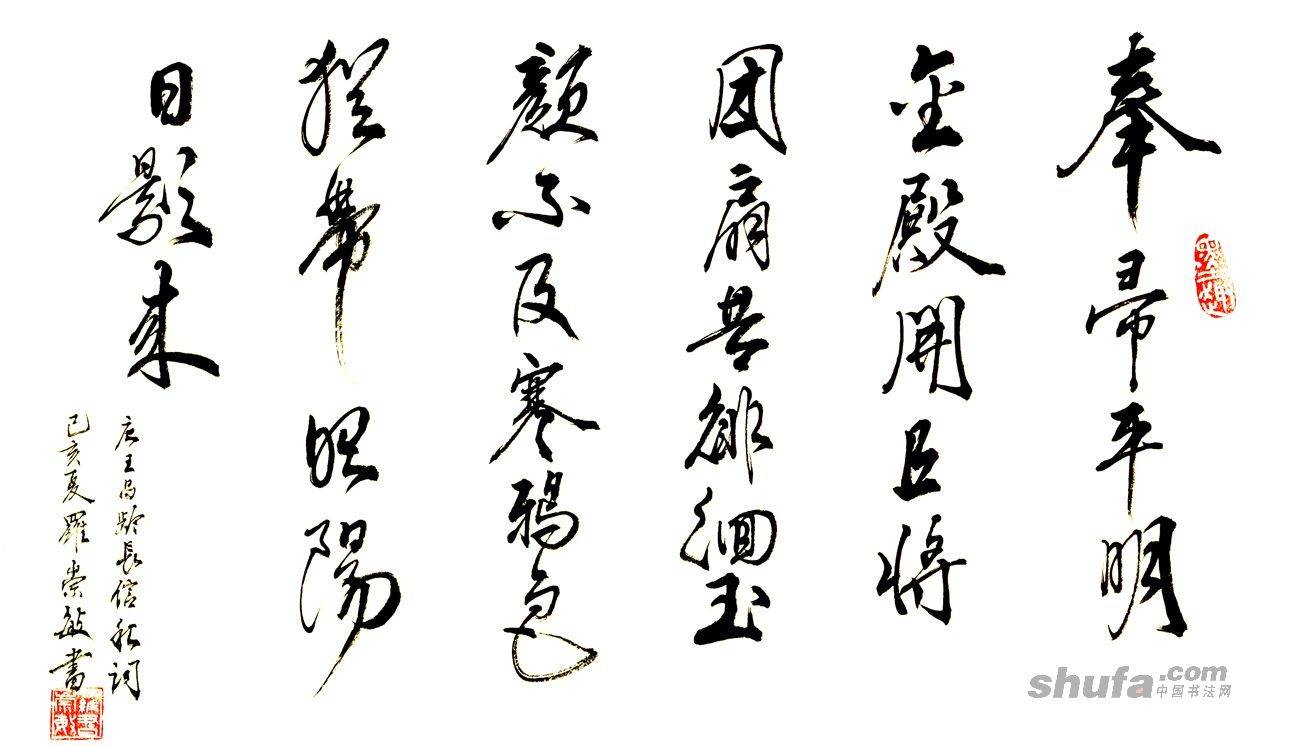 奉帚平明
金殿開且將
团扇共徘徊玉
顔不及寒鴉色
猶帶昭陽
日影来
唐王昌龄長信秋词
己亥夏羅崇敏書
shufa.com
中国书法网